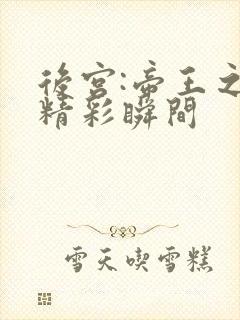 後宫:帝王之
精彩瞬間
雪天喫雪糕